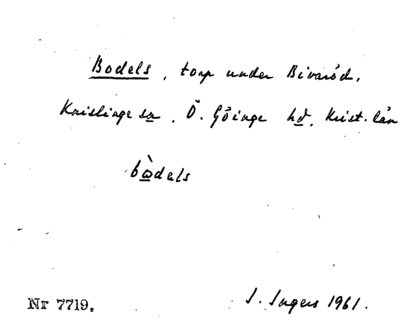 Bodels, torp under Bivaröd.
Knislinge sn, Ö. Göinge hd, Krist. län
bòdels
I. Ingers 1961.
Nr 7719.